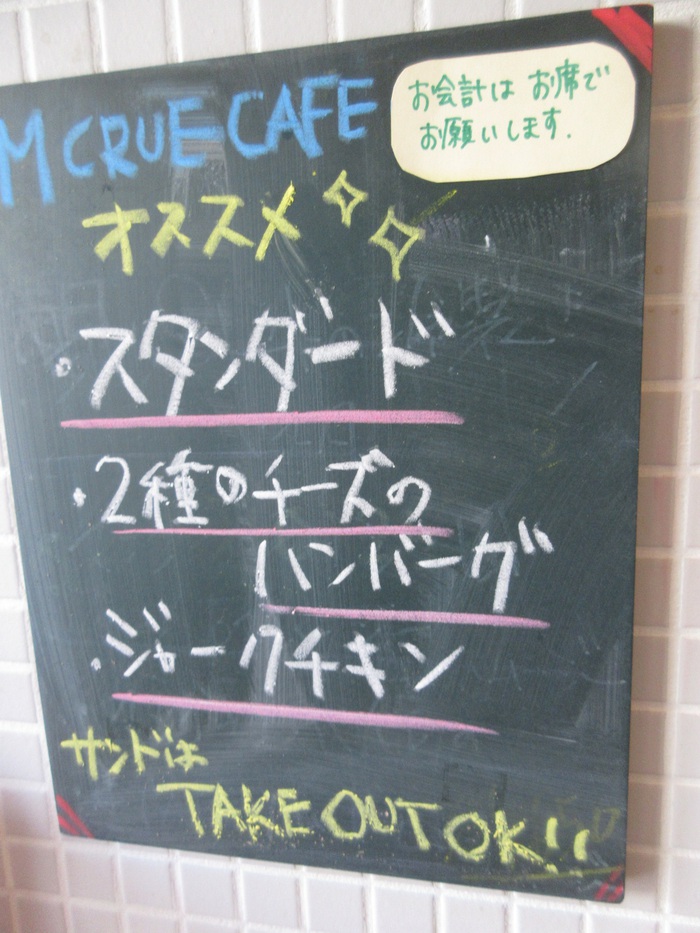 M CRUE CAFE
お会計は お席で
お願いします.
オススメ
・スタンダード
・2種のチーズの
ハンバーグ
・ジャークチキン
サンドは
TAKE OUT OK!!